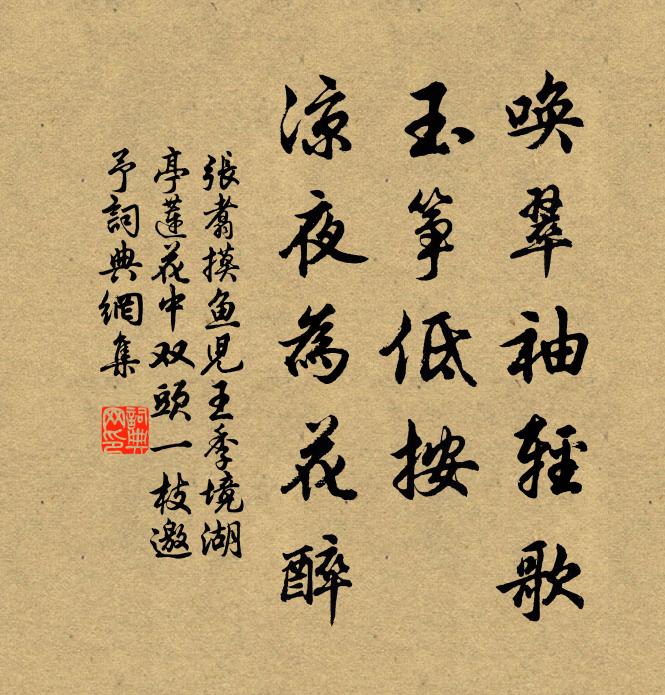 唤翠袖輕歌
玉筝低按
凉夜為花醉
張翥摸魚児王季境湖
亭蓮花中双頭一枝邀
予詞典網集
詞典
网印